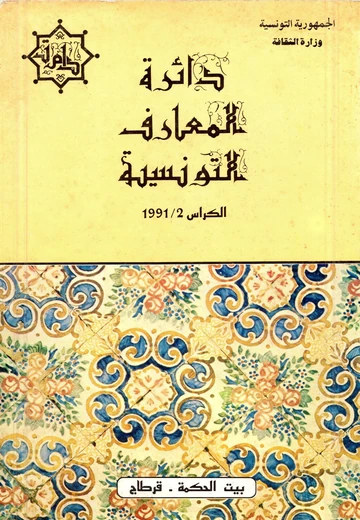 الجمهورية التونسية
وزارة الثقافة
دائرة
المعارف
التونسية
الكراس 2/1991
بيت الحكمة - قرطاج